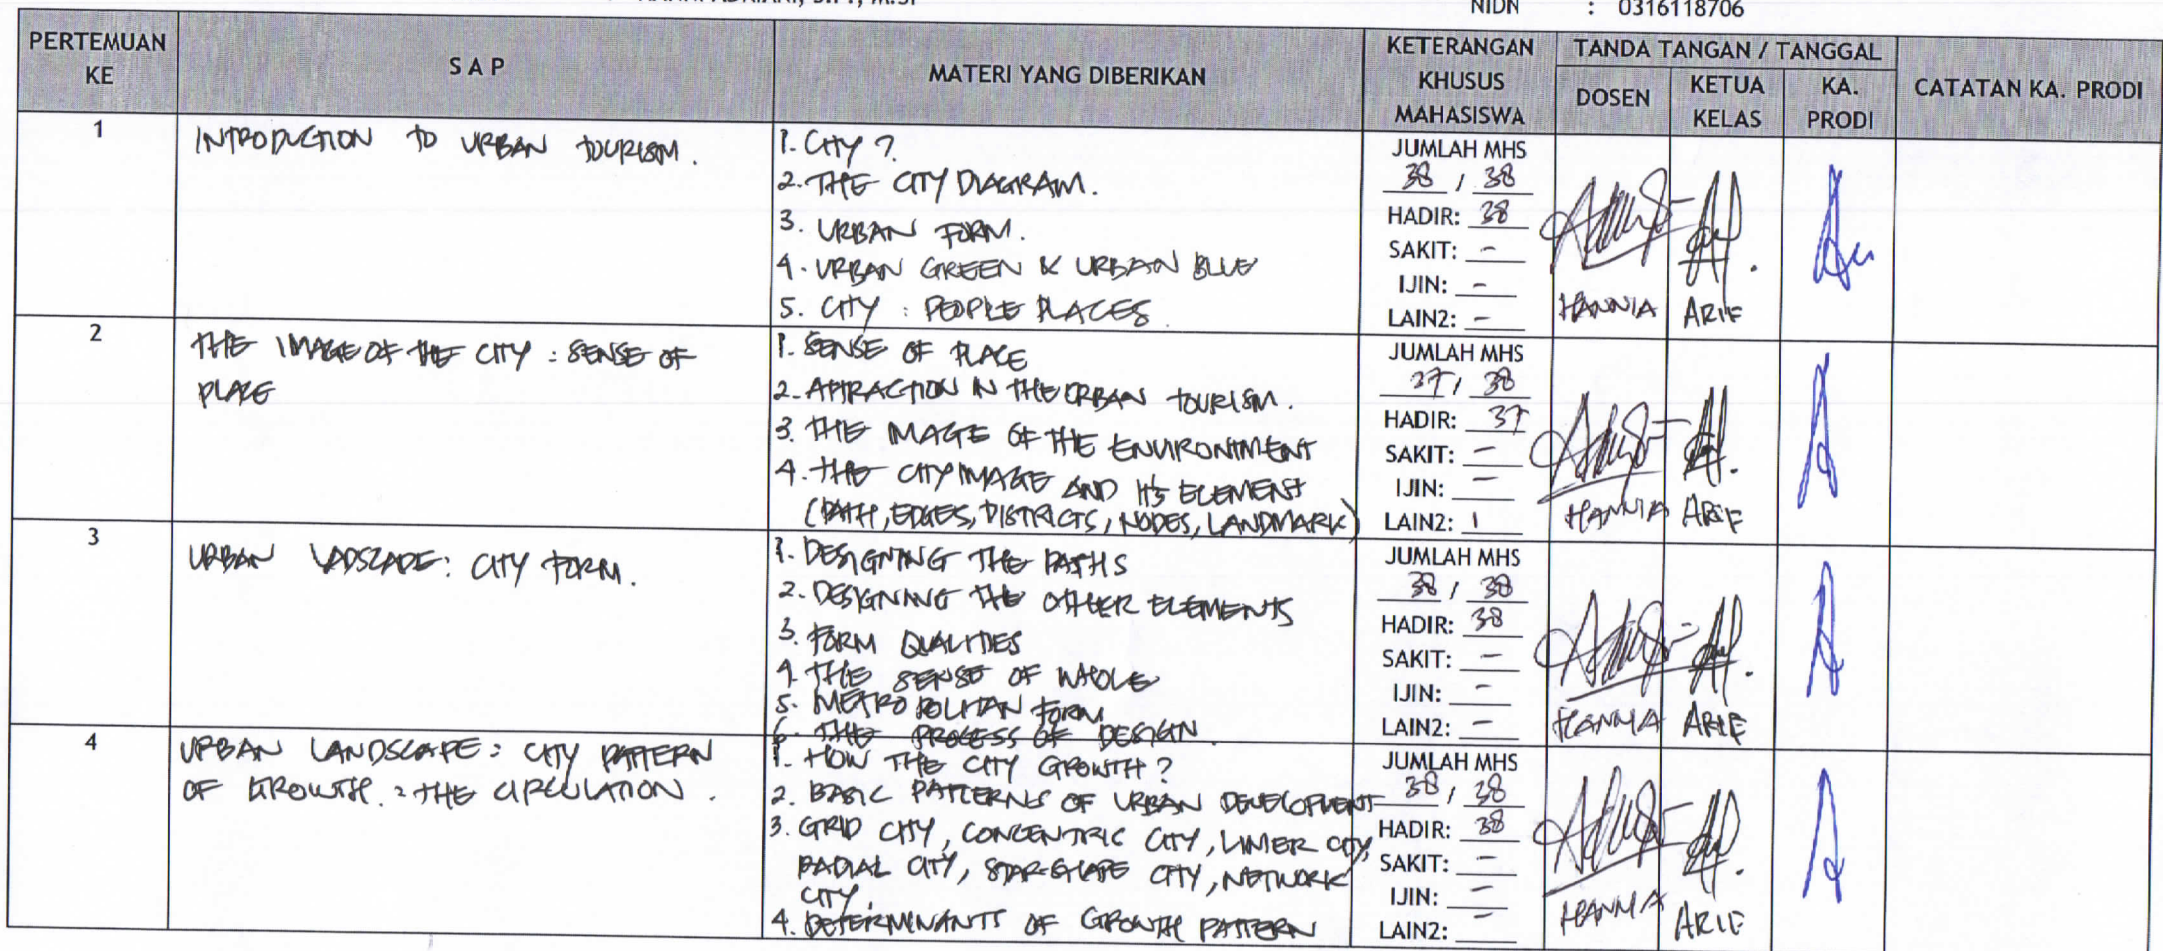 NIDN : 0316118706
PERTEMUAN KE
S A P
MATERI YANG DIBERIKAN
KETERANGAN KHUSUS MAHASISWA
TANDA TANGAN / TANGGAL
DOSEN
KETUA KELAS
KA. PRODI
CATATAN KA. PRODI
1
INTRODUCTION TO URBAN TOURISM.
1. CITY ?
2. THE CITY DIAGRAM.
3. URBAN FORM.
4. URBAN GREEN & URBAN BLUE
5. CITY : PEOPLE PLACES
JUMLAH MHS
38 / 38
HADIR: 38
SAKIT: -
IJIN: -
LAIN2: -
HANNIA
ARIE
2
THE IMAGE OF THE CITY : SENSE OF
PLACE
1. SENSE OF PLACE
2. ATTRACTION IN THE URBAN TOURISM.
3. THE IMAGE OF THE ENVIRONTMENT
4. THE CITY IMAGE AND IT'S ELEMENT
(PATH, EDGES, DISTRICTS, NODES, LANDMARK)
JUMLAH MHS
37 / 38
HADIR: 37
SAKIT: -
IJIN: -
LAIN2: 1
HANNIA
ARIE
3
URBAN LADSCAPE : CITY FORM.
1. DESIGNING THE PATHS
2. DESIGNING THE OTHER ELEMENTS
3. FORM QUALITIES
4. THE SENSE OF WHOLE
5. METROPOLITAN FORM
6. THE PROCESS OF DESIGN.
JUMLAH MHS
38 / 38
HADIR: 38
SAKIT: -
IJIN: -
LAIN2: -
HANNIA
ARIE
4
URBAN LANDSCAPE : CITY PATTERN
OF GROWTH : THE CIRCULATION.
1. HOW THE CITY GROWTH ?
2. BASIC PATTERNS OF URBAN DEVELOPMENT
3. GRID CITY, CONCENTRIC CITY, LINIER CITY,
RADIAL CITY, STAR-SHAPE CITY, NETWORK
CITY.
4. DETERMINANTS OF GROWTH PATTERN
JUMLAH MHS
38 / 38
HADIR: 38
SAKIT: -
IJIN: -
LAIN2: -
HANNIA
ARIE